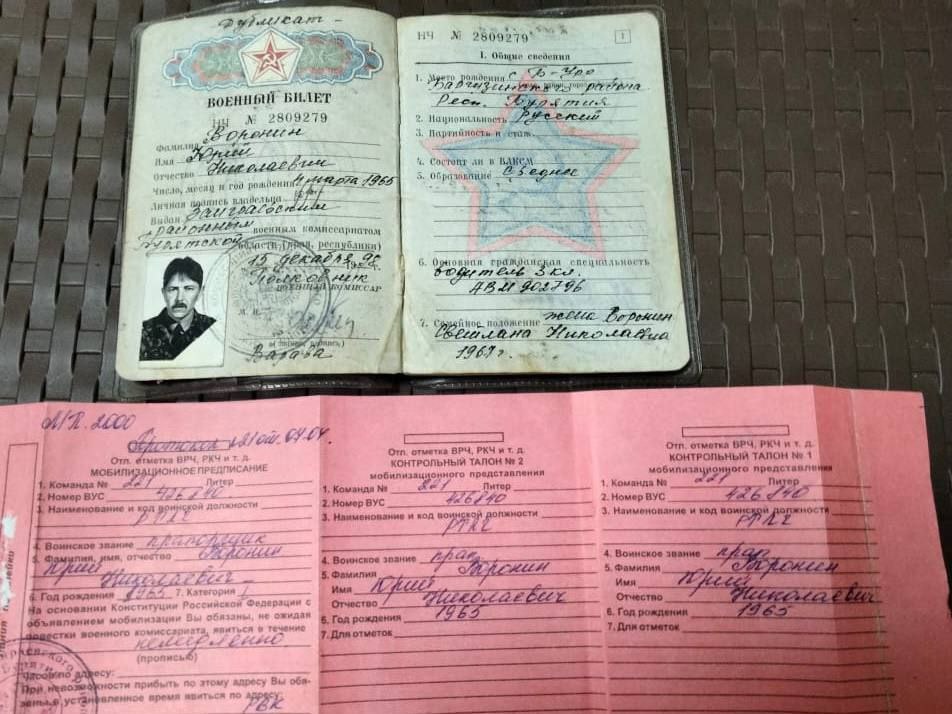 Дубликат
ВОЕННЫЙ БИЛЕТ
НЧ № 2809279
Фамилия Воронин
Имя Юрий
Отчество Николаевич
Число, месяц и год рождения 4 марта 1965
Личная подпись владельца
Выдан Заиграевским
районным военным комиссариатом
Бурятской области (края, республики)
15 декабря 19
Полковник
ВОЕННЫЙ КОМИССАР
М. П.
НЧ № 2809279
1
I. Общие сведения
1. Место рождения с. Б-Уро
Баргузинского района
Респ. Бурятия
2. Национальность Русский
3. Партийность и стаж
4. Состоит ли в ВЛКСМ
5. Образование Среднее
6. Основная гражданская специальность
водитель 3 кл.
АВМ 902796
7. Семейное положение жена Воронин
Светлана Николаевна
1967 г.
МП. 2000
Протокол
Отл. отметка ВРЧ, РКЧ и т. д.
МОБИЛИЗАЦИОННОЕ ПРЕДПИСАНИЕ
1. Команда № 221 Литер
2. Номер ВУС 426840
3. Наименование и код воинской должности
4. Воинское звание прапорщик
5. Фамилия, имя, отчество Воронин
Юрий
Николаевич
6. Год рождения 1965 7. Категория I
На основании Конституции Российской Федерации с
объявлением мобилизации Вы обязаны, не ожидая
повестки военного комиссариата, явиться в течение
немедленно
(прописью)
часов по адресу:
При невозможности прибыть по этому адресу Вы обя-
заны в установленное время явиться по адресу
РВК
Отл. отметка ВРЧ, РКЧ и т. д.
КОНТРОЛЬНЫЙ ТАЛОН № 2
мобилизационного представления
1. Команда № 221 Литер
2. Номер ВУС 426840
3. Наименование и код воинской должности
4. Воинское звание прап
5. Фамилия Воронин
Имя Юрий
Отчество Николаевич
6. Год рождения 1965
7. Для отметок
Отл. отметка ВРЧ, РКЧ и т. д.
КОНТРОЛЬНЫЙ ТАЛОН № 1
мобилизационного представления
1. Команда № 221 Литер
2. Номер ВУС 426840
3. Наименование и код воинской должности
4. Воинское звание прап
5. Фамилия Воронин
Имя Юрий
Отчество Николаевич
6. Год рождения 1965
7. Для отметок